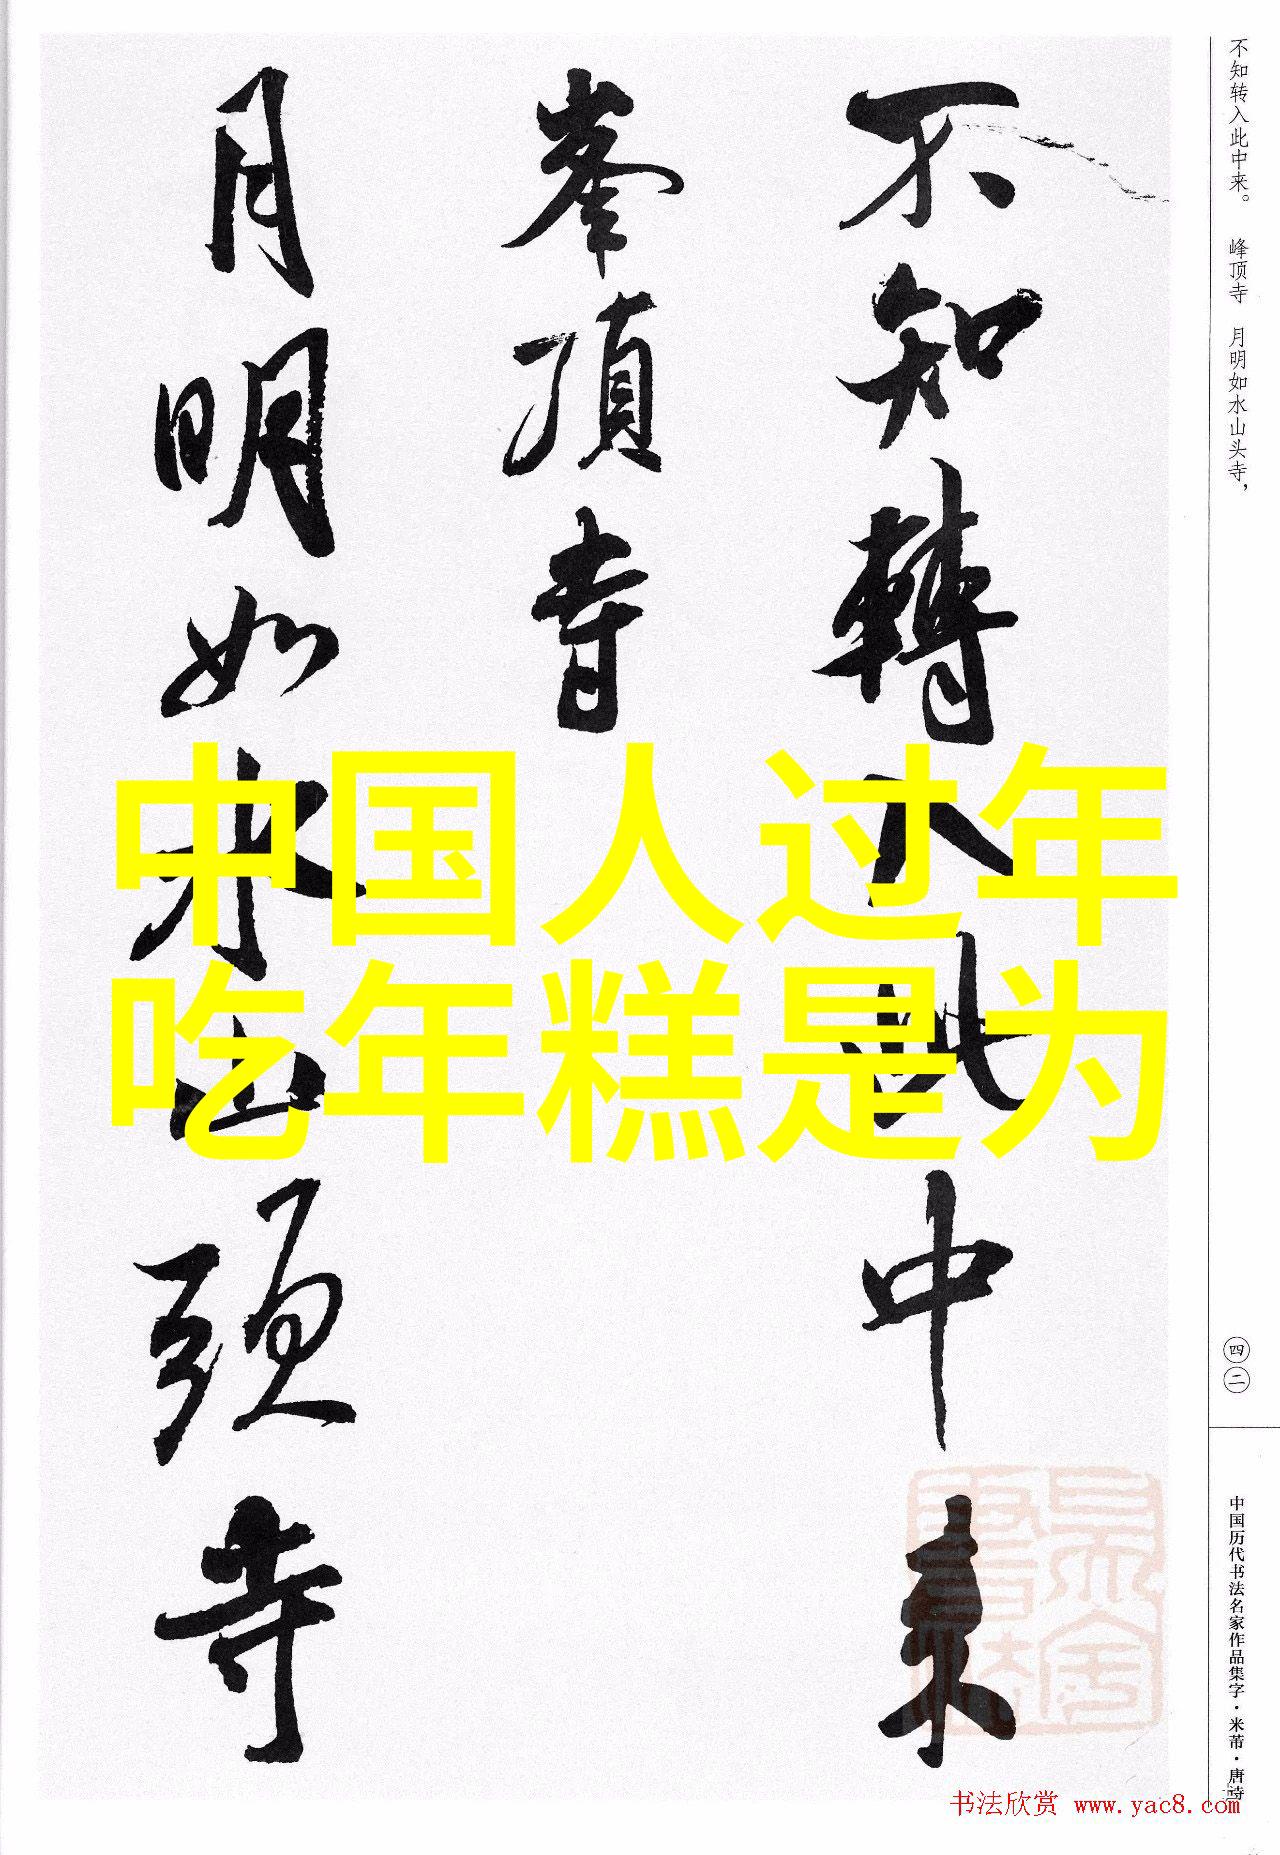 不知转入此中来。 峰顶寺 月明如水山头寺，
不知轉入此中来
峯頂寺
月明如水山頭寺
中国人过年
吃年糕是为
四二
中国历代书法名家作品集字·米芾·唐诗
书法欣赏 www.yac8.com